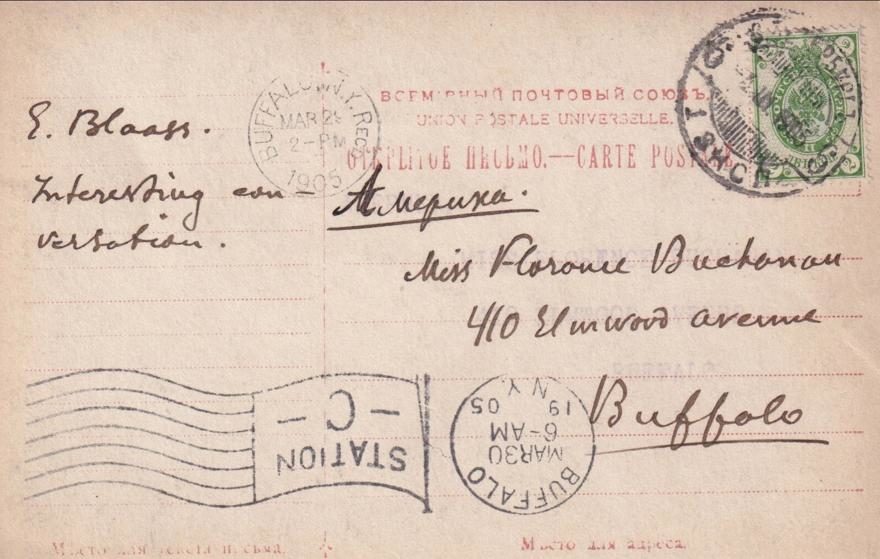 ВСЕМІРНЫЙ ПОЧТОВЫЙ СОЮЗЪ.
UNION POSTALE UNIVERSELLE.
ОТКРЫТОЕ ПИСЬМО.—CARTE POSTALE.
BUFFALO, N.Y. REC'D
MAR 29
2-PM
1905
E. Blaass.
Interesting con
versation.
Америка.
Miss Florence Buchanan
410 Elmwood avenue
Buffalo
STATION
-C-
BUFFALO
N.Y.
MAR30
6-AM
19 05
Мѣсто для текста письма.
Мѣсто для адреса.